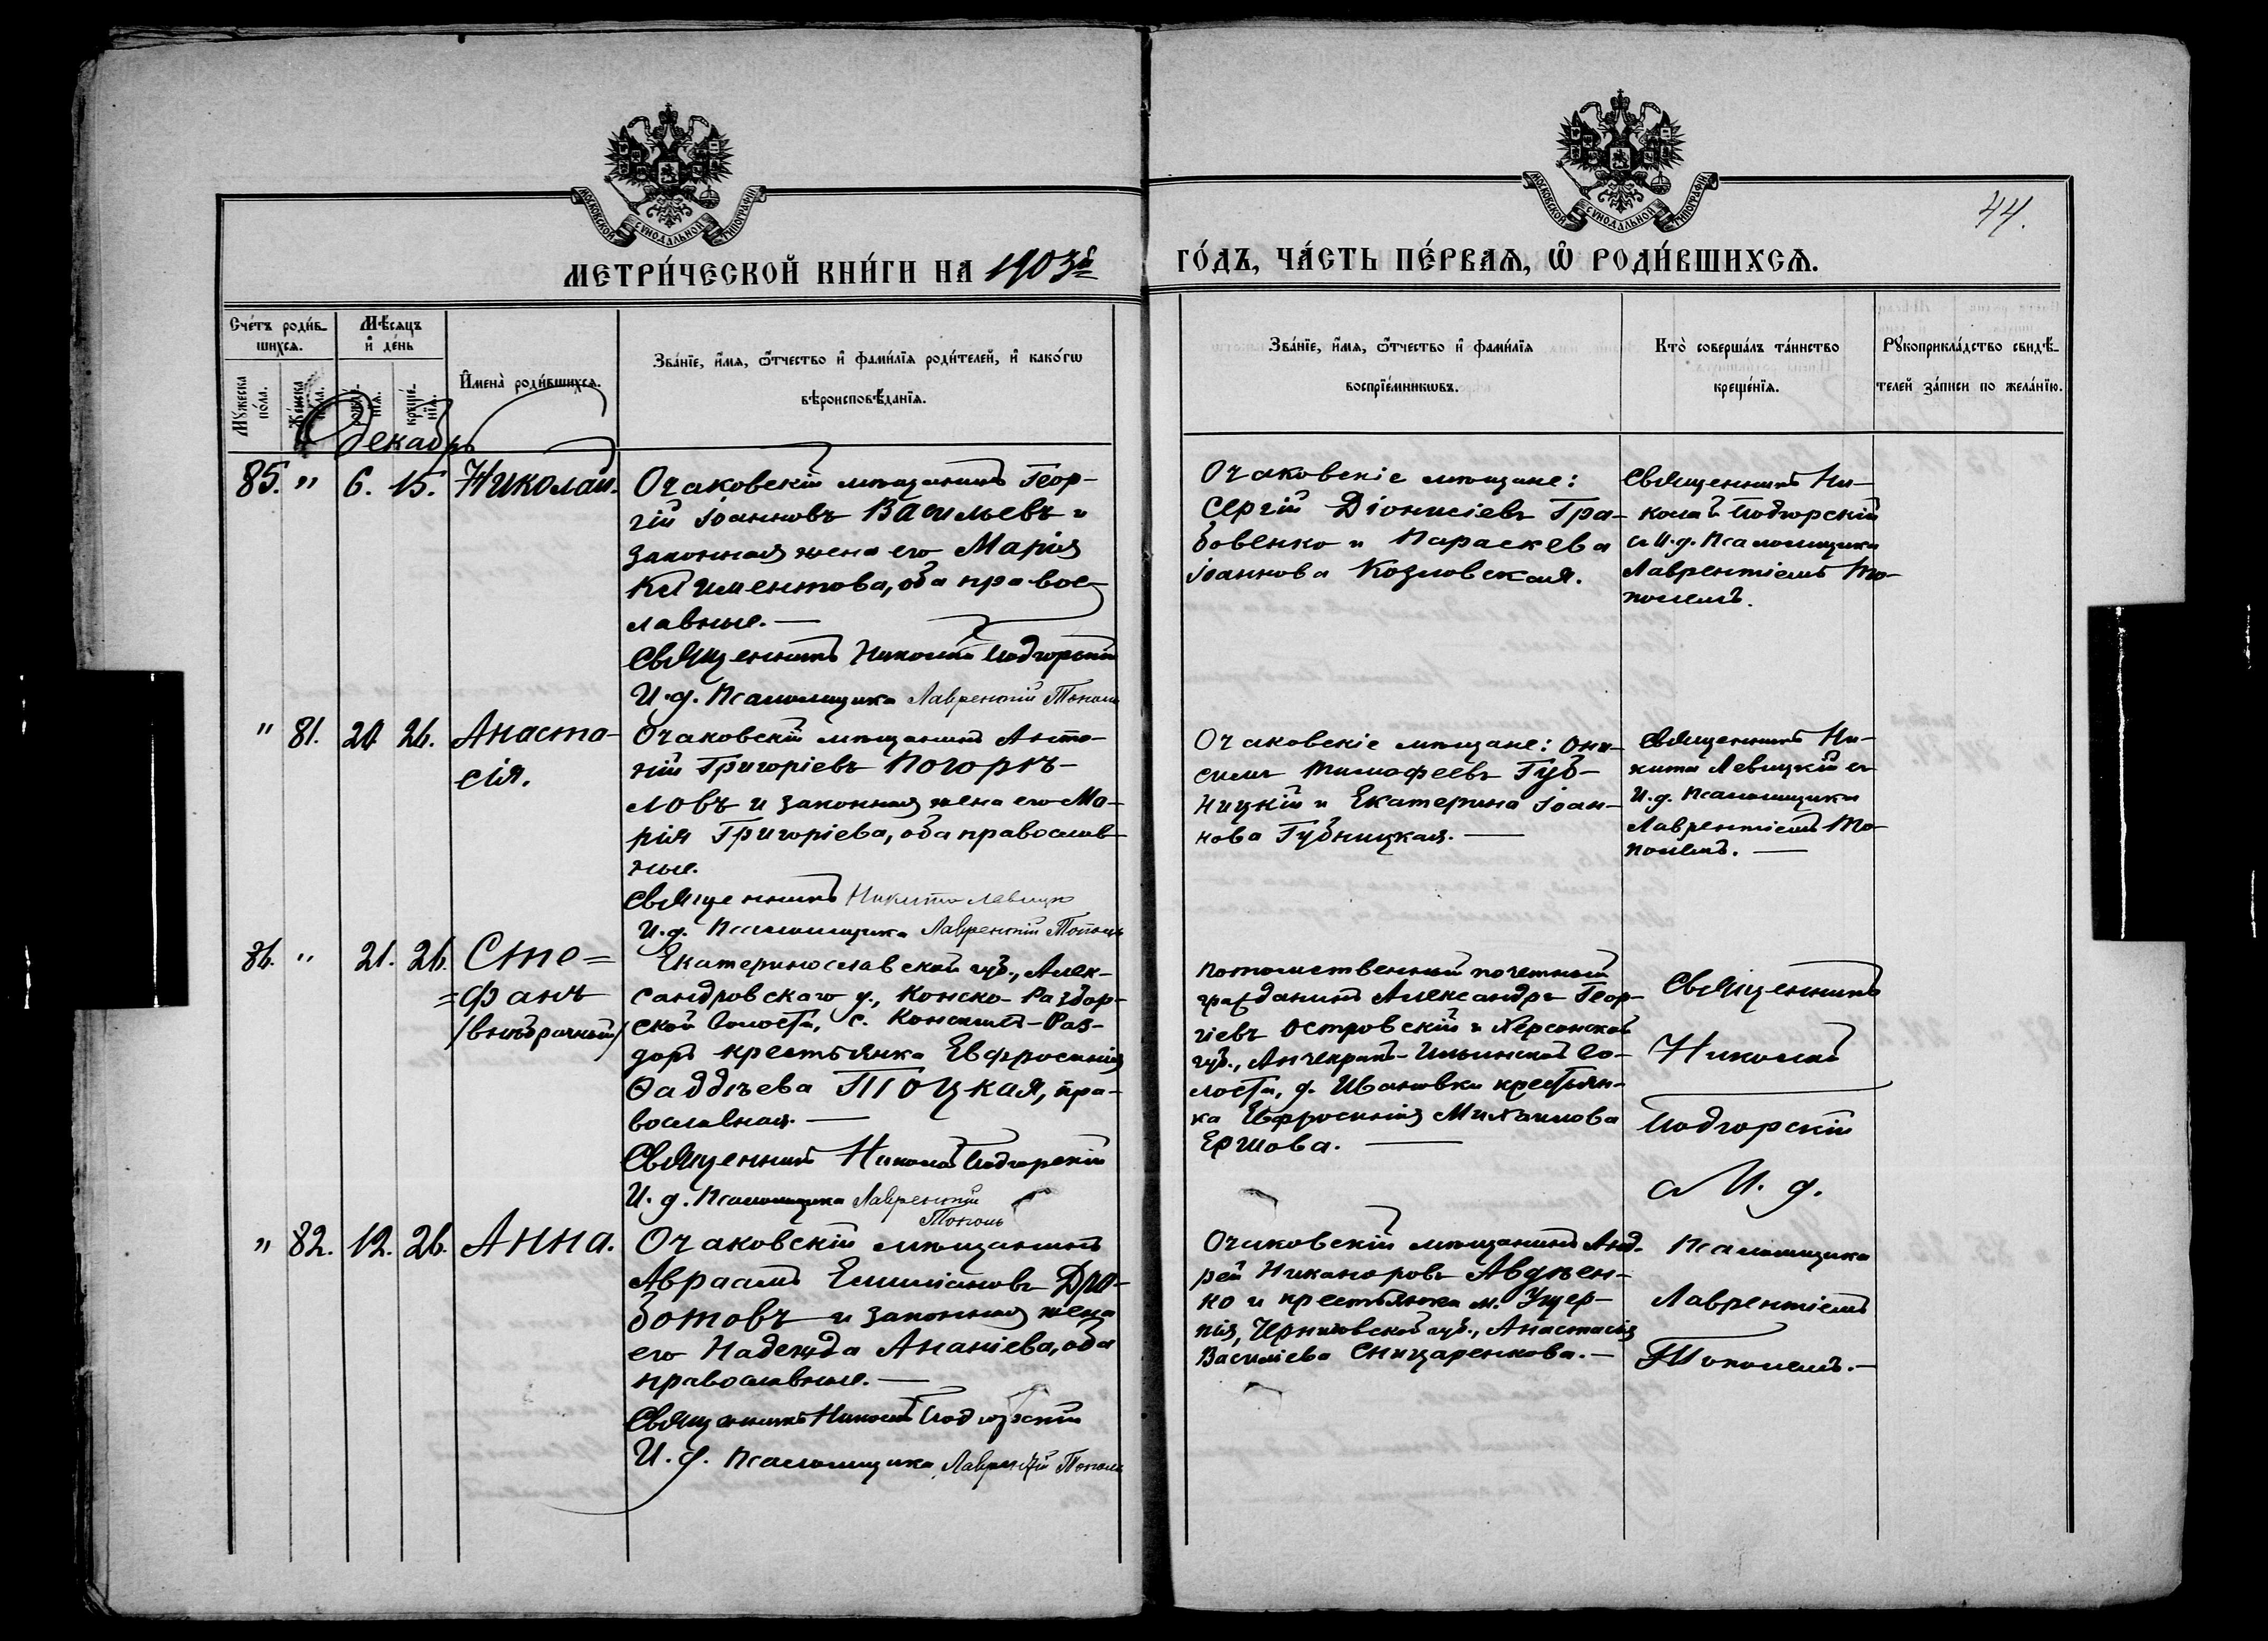 44.
МОСКОВСКОЙ СѴНОДАЛЬНОЙ ТИПОГРАФІИ
МОСКОВСКОЙ СѴНОДАЛЬНОЙ ТИПОГРАФІИ
МЕТРИ́ЧЕСКОЙ КНИ́ГИ НА 1903й
ГО́ДЪ, ЧА́СТЬ ПЕ́РВАѦ, Ѽ РОДИ́ВШИХСѦ.
Сче́тъ роди́в-
шихсѧ.
Мѣ́сѧцъ
и҆ де́нь
Мꙋ́жеска
по́ла.
Же́нска
по́ла.
рожде́-
нїѧ.
креще́-
нїѧ.
И҆мена̀ роди́вшихсѧ.
Зва́нїе, и҆́мѧ, ѻ҆́тчество и҆ фами́лїѧ роди́телей, и҆ како́гѡ
вѣроисповѣ́данїѧ.
Зва́нїе, и҆́мѧ, ѻ҆́тчество и҆ фами́лїѧ
воспрїе́мникѡвъ.
Кто̀ соверша́лъ та́инство
креще́нїѧ.
Рꙋкоприкла́дство свидѣ́-
телей за́писи по жела́нїю.
Декабрь
85. " 6. 15. Николай.
Очаковскій мѣщанинъ Геор-
гій Іоанновъ Васильевъ и
законная жена его Марія
Климентова, оба правос-
лавные. —
Священникъ Николай Подгорскій
И. д. Псаломщика Лаврентій Тополь
Очаковскіе мѣщане:
Сергій Діонисіевъ Гра-
бовенко и Параскева
Іоаннова Козловская.
Священникъ Ни-
колай Подгорскій
съ И. д. Псаломщика
Лаврентіемъ То-
полемъ.
" 81. 20. 26. Анаста-
сія.
Очаковскій мѣщанинъ Анто-
ній Григоріевъ Погорѣ-
ловъ и законная жена его Ма-
рія Григоріева, оба православ-
ные.
Священникъ Никита Левицк
И. д. Псаломщика Лаврентій Тополь
Очаковскіе мѣщане: Они-
симъ Тимофеевъ Губ-
ницкій и Екатерина Іоан-
нова Губницкая. —
Священникъ Ни-
кита Левицкій съ
И. д. Псаломщика
Лаврентіемъ То-
полемъ. —
86. " 21. 26. Сте=
=фанъ
/внѣбрачный/
Екатеринославской губ., Алек-
сандровскаго у., Конско-Раздор-
ской волости, с. Конскихъ-Раз-
доръ крестьянка Евфросинія
Ѳаддѣева Тоцкая, пра-
вославная. —
Священникъ Николай Подгорскій
И. д. Псаломщика Лаврентій
Тополь
Потомственный почетный
гражданинъ Александръ Геор-
гіевъ Островскій и Херсонской
губ., Анчекрако-Ильинской во-
лости, д. Ивановки крестьян-
ка Евфросинія Михаилова
Ершова. —
Священникъ
Николай
Подгорскій
съ И. д.
Псаломщика
Лаврентіемъ
Тополемъ. —
" 82. 12. 26. Анна.
Очаковскій мѣщанинъ
Авраамъ Емиліановъ Дра-
ботовъ и законная жена
его Надежда Ананіева, оба
православные. —
Священникъ Николай Подгорскій
И. д. Псаломщика Лаврентій Тополь
Очаковскій мѣщанинъ Анд-
рей Никаноровъ Авдѣен-
ко и крестьянка м. Ущер-
пія, Черниговской губ., Анастасія
Василіева Сницаренкова. —